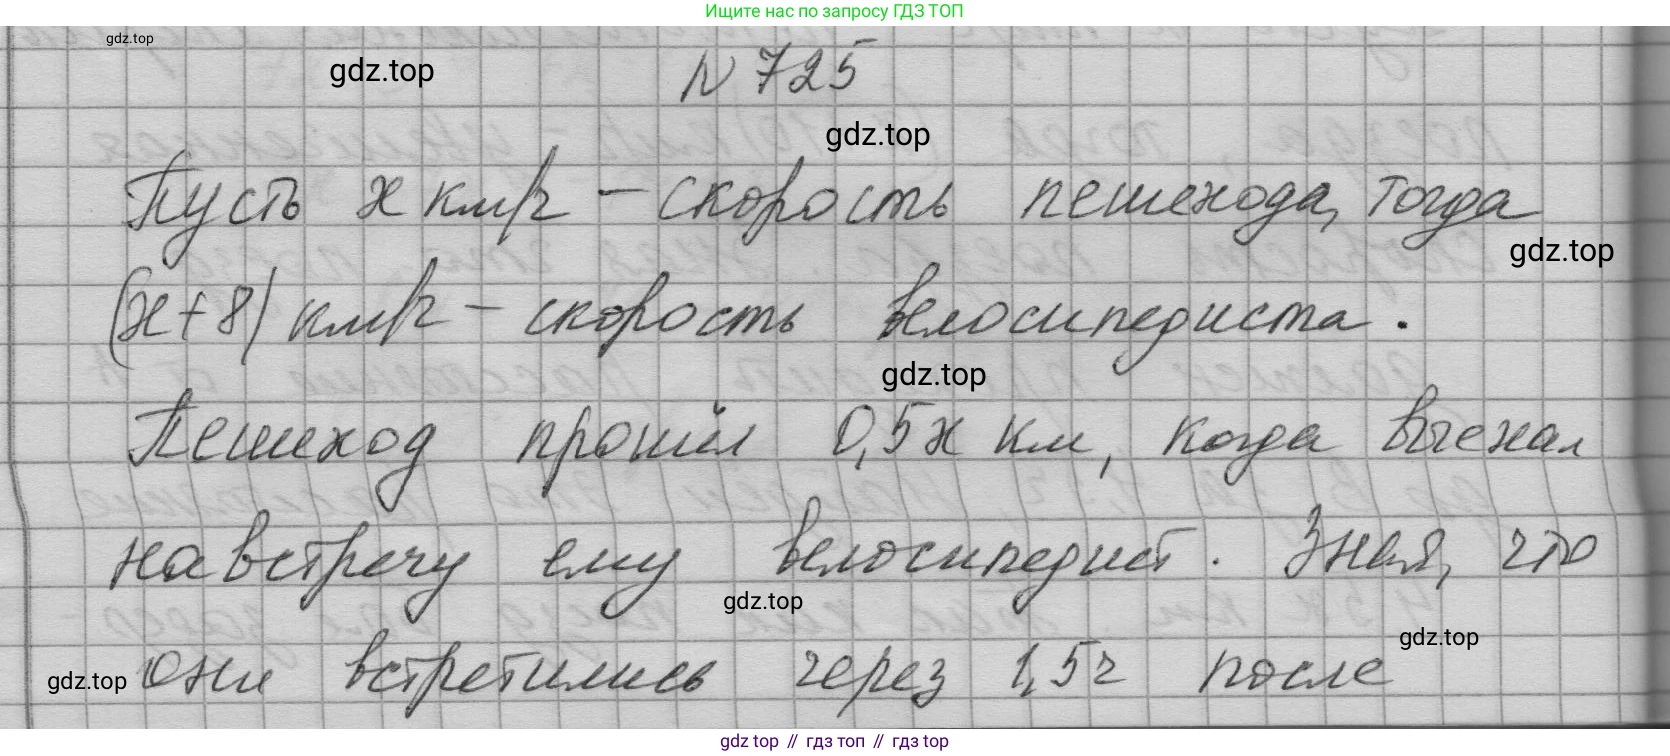 Ищите нас по запросу ГДЗ ТОП
gdz.top
gdz.top
N 725
gdz.top
Пусть x км/ч – скорость пешехода, тогда
gdz.top
(x+8) км/ч – скорость велосипедиста.
gdz.top
Пешеход прошёл 0,5x км, когда выехал
навстречу ему велосипедист. Зная, что
gdz.top
gdz.top
они встретились через 1,5ч после
gdz.top
gdz top // гдз топ // гдз top